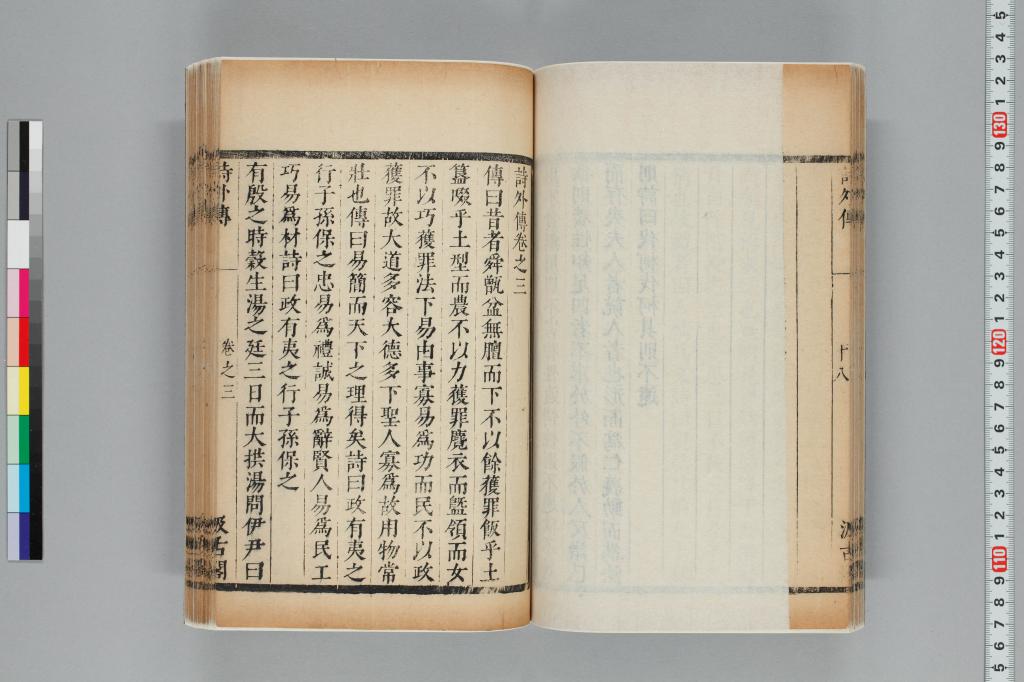 詩外傳 十八 汲古
詩外傳卷之三
傳曰昔者舜甑盆無膻而下不以餘獲罪飯乎土
簋啜乎土型而農不以力獲罪麑衣而盭領而女
不以巧獲罪法下易由事寡易爲功而民不以政
獲罪故大道多容大德多下聖人寡爲故用物常
壯也傳曰易簡而天下之理得矣詩曰政有夷之
行子孫保之忠易爲禮誠易爲辭賢人易爲民工
巧易爲材詩曰政有夷之行子孫保之
有殷之時榖生湯之廷三日而大拱湯問伊尹曰
詩外傳 卷之三 汲古閣